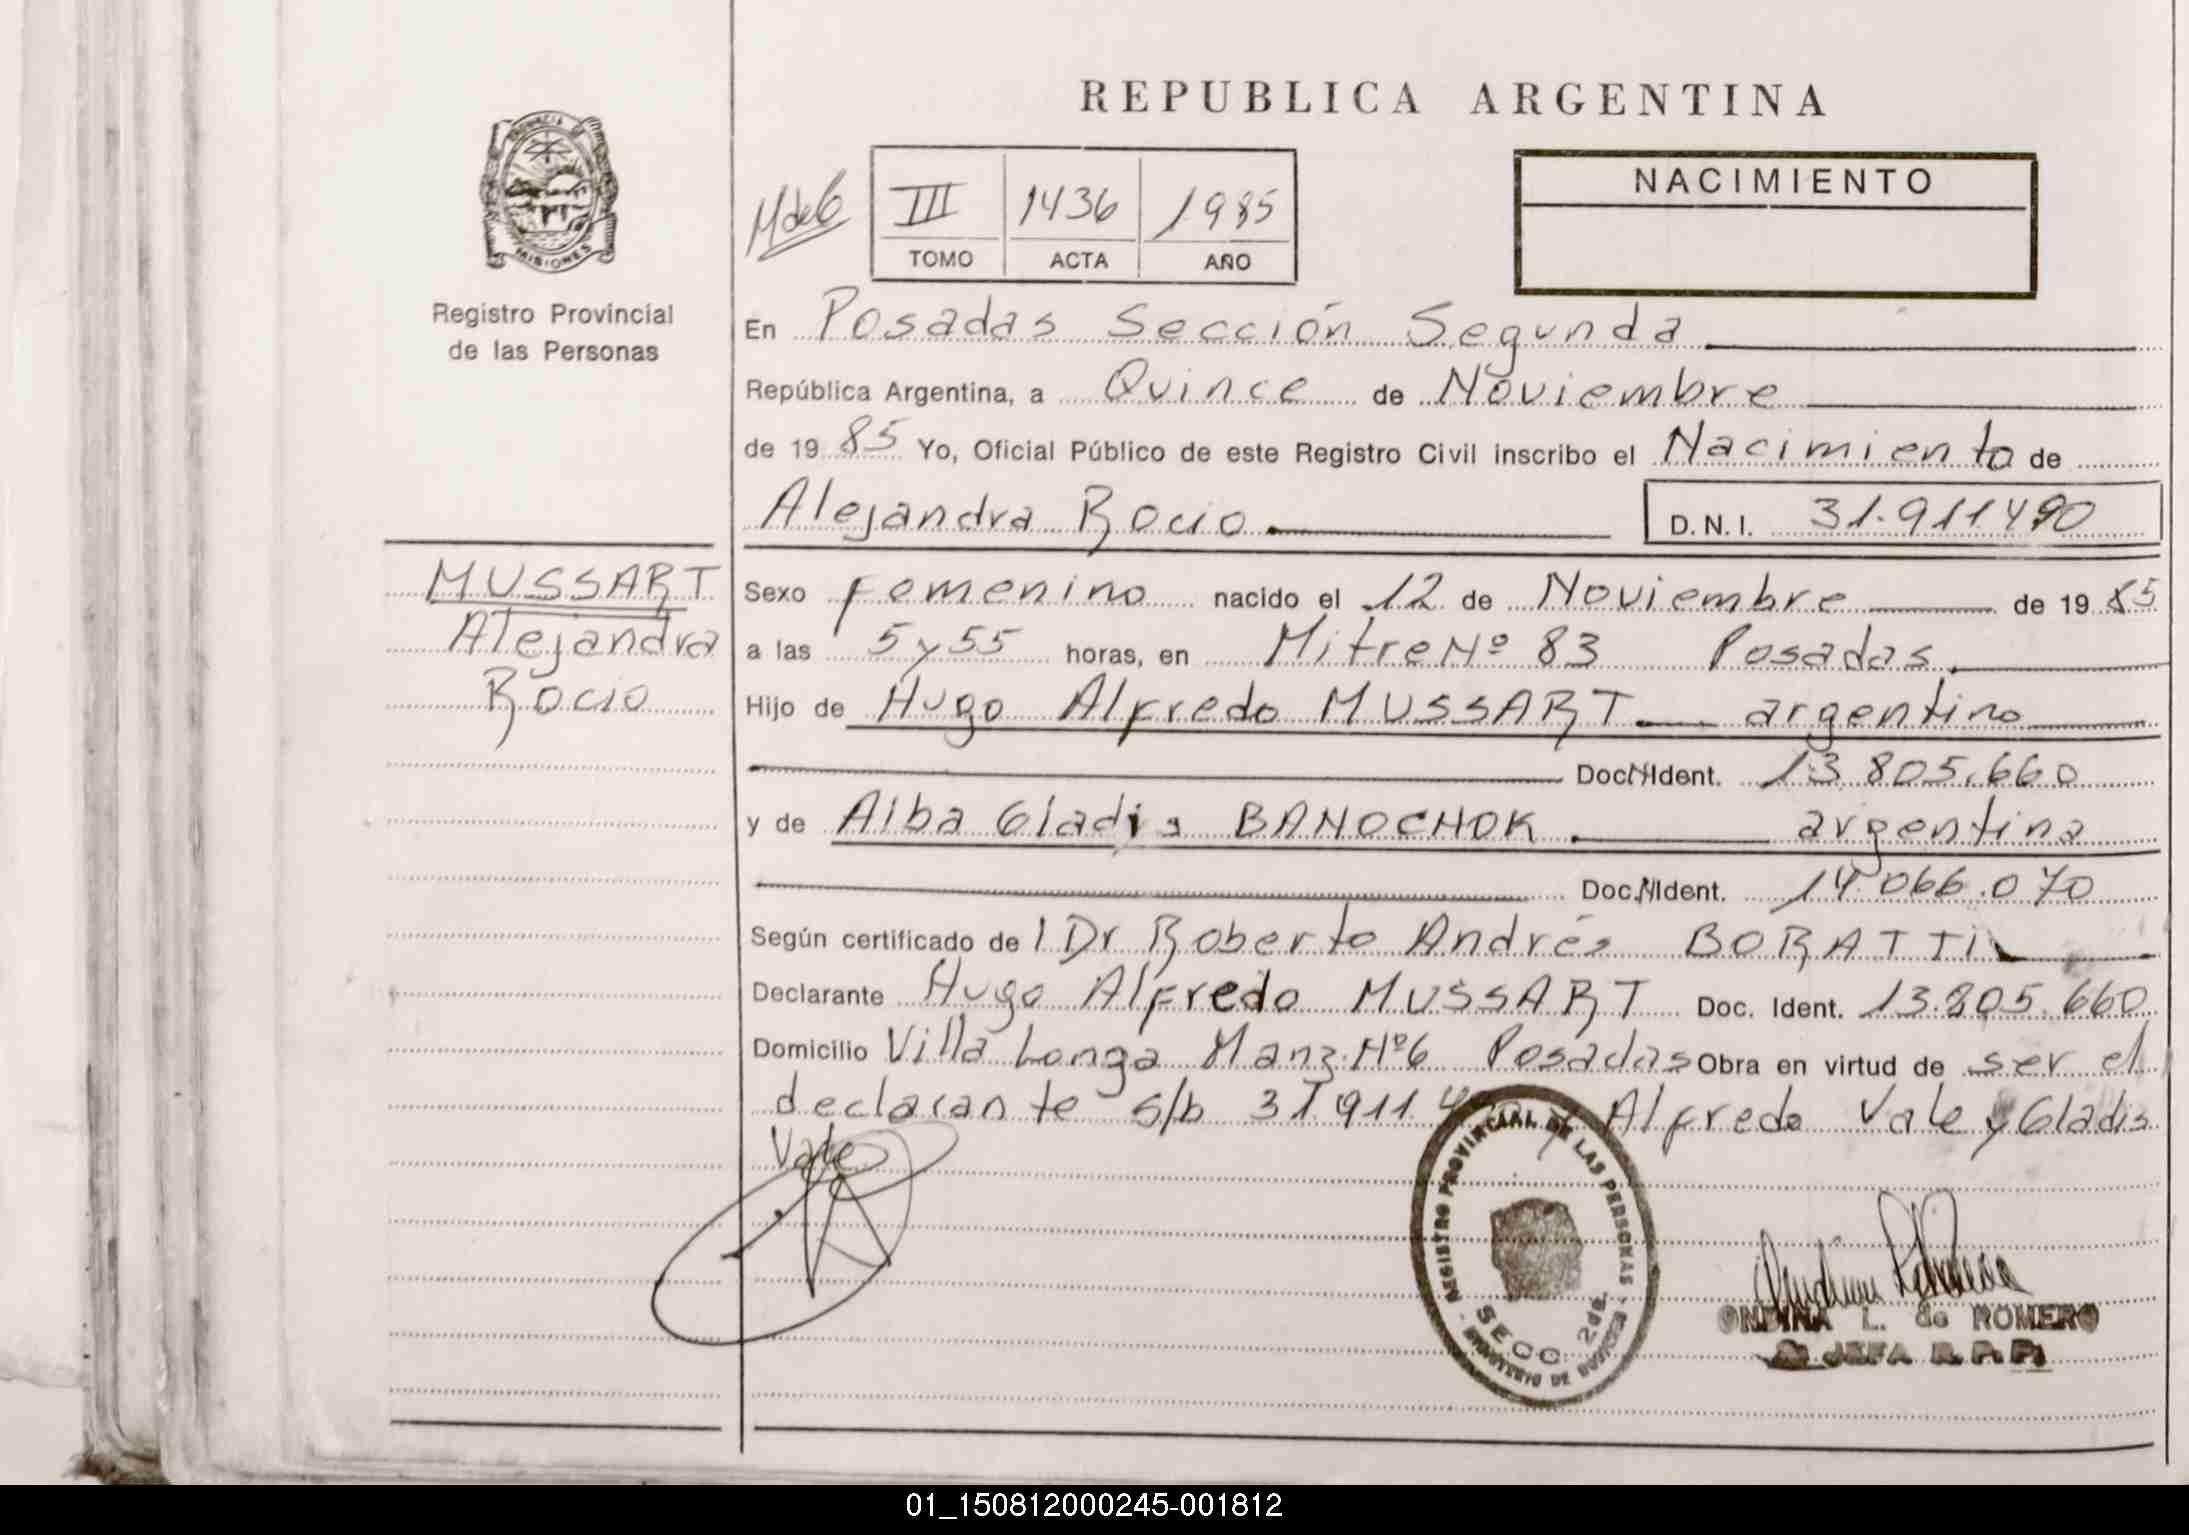 REPUBLICA ARGENTINA
PROVINCIA DE
MISIONES
Registro Provincial
de las Personas
III 1436 1985
TOMO ACTA AÑO
NACIMIENTO
En Posadas Sección Segunda
República Argentina, a Quince de Noviembre
de 19 85 Yo, Oficial Público de este Registro Civil inscribo el Nacimiento de
Alejandra Rocio D.N.I. 31.911.490
MUSSART
Alejandra
Rocio
Sexo Femenino nacido el 12 de Noviembre de 19 85
a las 5 y 55 horas, en Mitre Nº 83 Posadas
Hijo de Hugo Alfredo MUSSART argentino
Doc. N Ident. 13.805.660
y de Alba Gladis BANOCHOK argentina
Doc. N Ident. 14.066.070
Según certificado de l Dr Roberto Andrés BORATTI
Declarante Hugo Alfredo MUSSART Doc. Ident. 13.805.660
Domicilio Villa Longa Manz. Nº6 Posadas Obra en virtud de ser el
declarante s/b 31.911.4 y Alfredo Vale y Gladis
Vale
REGISTRO PROVINCIAL DE LAS PERSONAS
SECC. 2da.
MINISTERIO DE
ONDINA L. de ROMERO
JEFA R. P. P.
01_150812000245-001812